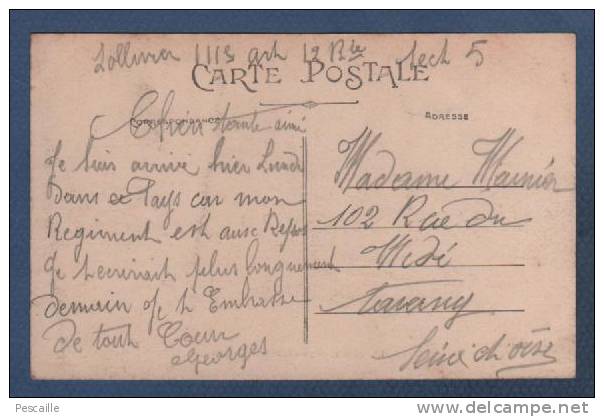 Lollivier 111e art 12 Bte Sect 5
CARTE POSTALE
CORRESPONDANCE
ADRESSE
Cher tante aimé
Je suis arrivé hier Lundi
Dans ce Pays car mon
Regiment est ausc Repos
Je t ecrirait plus longuement
demain Je t Embrasse
de tout Cœur
Georges
Madame Marnier
102 Rue du
Midi
Taverny
Seine et d'oise
Pescaille
http://www.delcampe.net